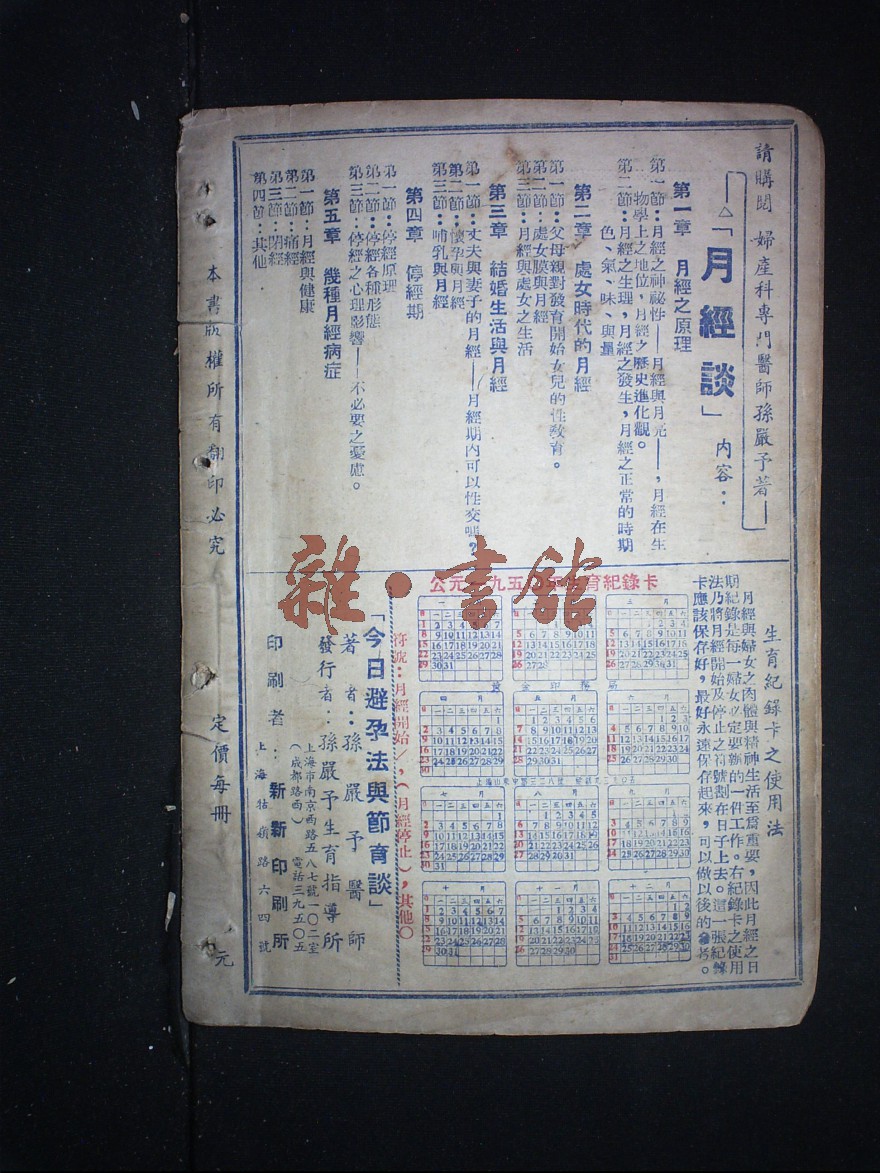 請購閱 婦產科專門醫師孫嚴予著
「月經談」 內容：
第一章 月經之原理
第一節：月經之神祕性——月經與月亮——，月經在生
物學上之地位，月經之歷史進化觀。
第二節：月經之生理，月經之發生，月經之正常的時期
色、氣、味、與量
第二章 處女時代的月經
第一節：父母親對發育開始女兒的性教育。
第二節：處女膜與月經
第三節：月經與處女之生活
第三章 結婚生活與月經
第一節：丈夫與妻子的月經——月經期內可以性交嗎？
第二節：懷孕與月經
第三節：哺乳與月經
第四章 停經期
第一節：停經原理
第二節：停經各種形態
第三節：停經之心理影響——不必要之憂慮。
第五章 幾種月經病症
第一節：月經與健康
第二節：痛經
第三節：閉經
第四節：其他
生育紀錄卡之使用法
月經與婦女之肉體與精神生活至爲重要，因此月經之日
期紀錄是每一婦女必定要辦的一件工作。右紀錄卡之使用
法乃將月經開始及停止之符號劃在日子上去。這一張紀錄
卡應該保存好，最好永遠保存起來，可以做以後的參考。
公元一九五〇年生育紀錄卡
三月
四月
五月
六月
七月
八月
九月
十月
十一月
十二月
符號：月經開始/，（月經停止），其他〇
「今日避孕法與節育談」
著者：孫嚴予醫師
發行者：孫嚴予生育指導所
上海市南京西路五八七號一〇二室
（成都路西）電話三九五〇五
印刷者：新新印刷所
上海牯嶺路六四號
本書版權所有翻印必究 定價每冊 元
雜·書館